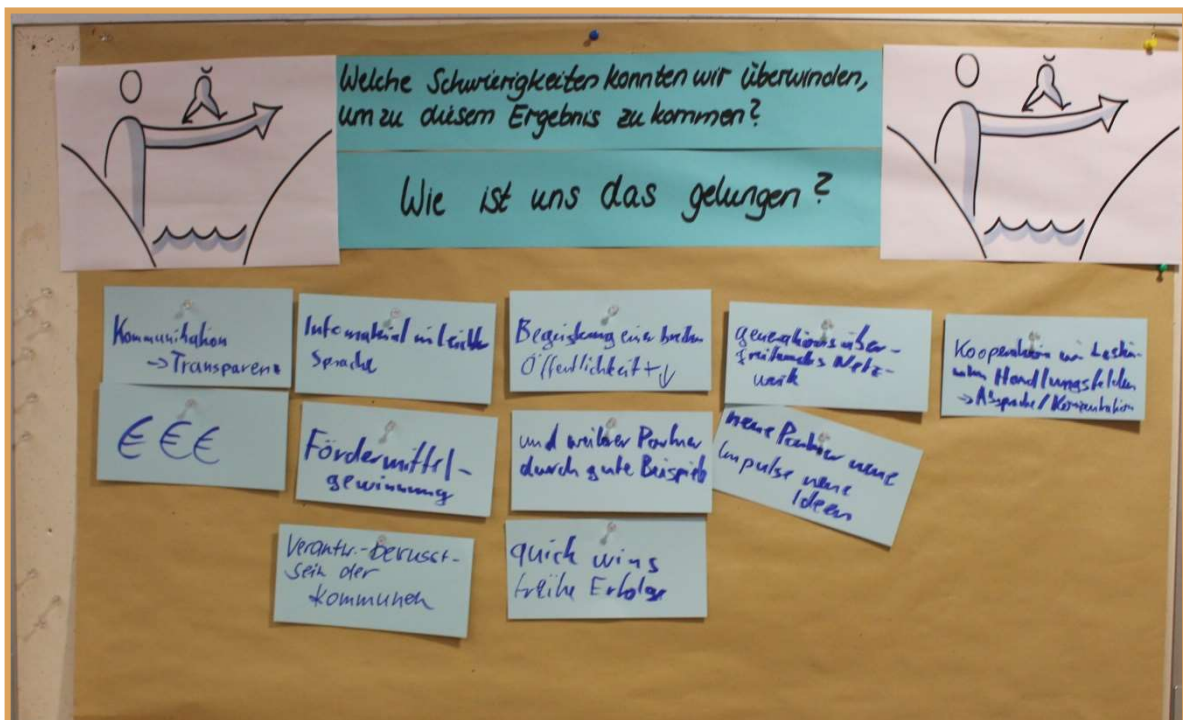 Welche Schwierigkeiten konnten wir überwinden,
um zu diesem Ergebnis zu kommen?
Wie ist uns das gelungen?
Kommunikation
→ Transparenz
Infomaterial in leichter
Sprache
Begeisterung einer breiten
Öffentlichkeit + ↓
generationsüber-
greifendes Netz-
werk
Kooperation in bestim-
mten Handlungsfeldern
→ Absprache /
€ € €
Fördermittel-
gewinnung
und weiterer Partner
durch gute Beispiele
neue Partner neue
Impulse neue
Ideen
Verantw.-bewusst-
sein der
Kommunen
quick wins
frühe Erfolge